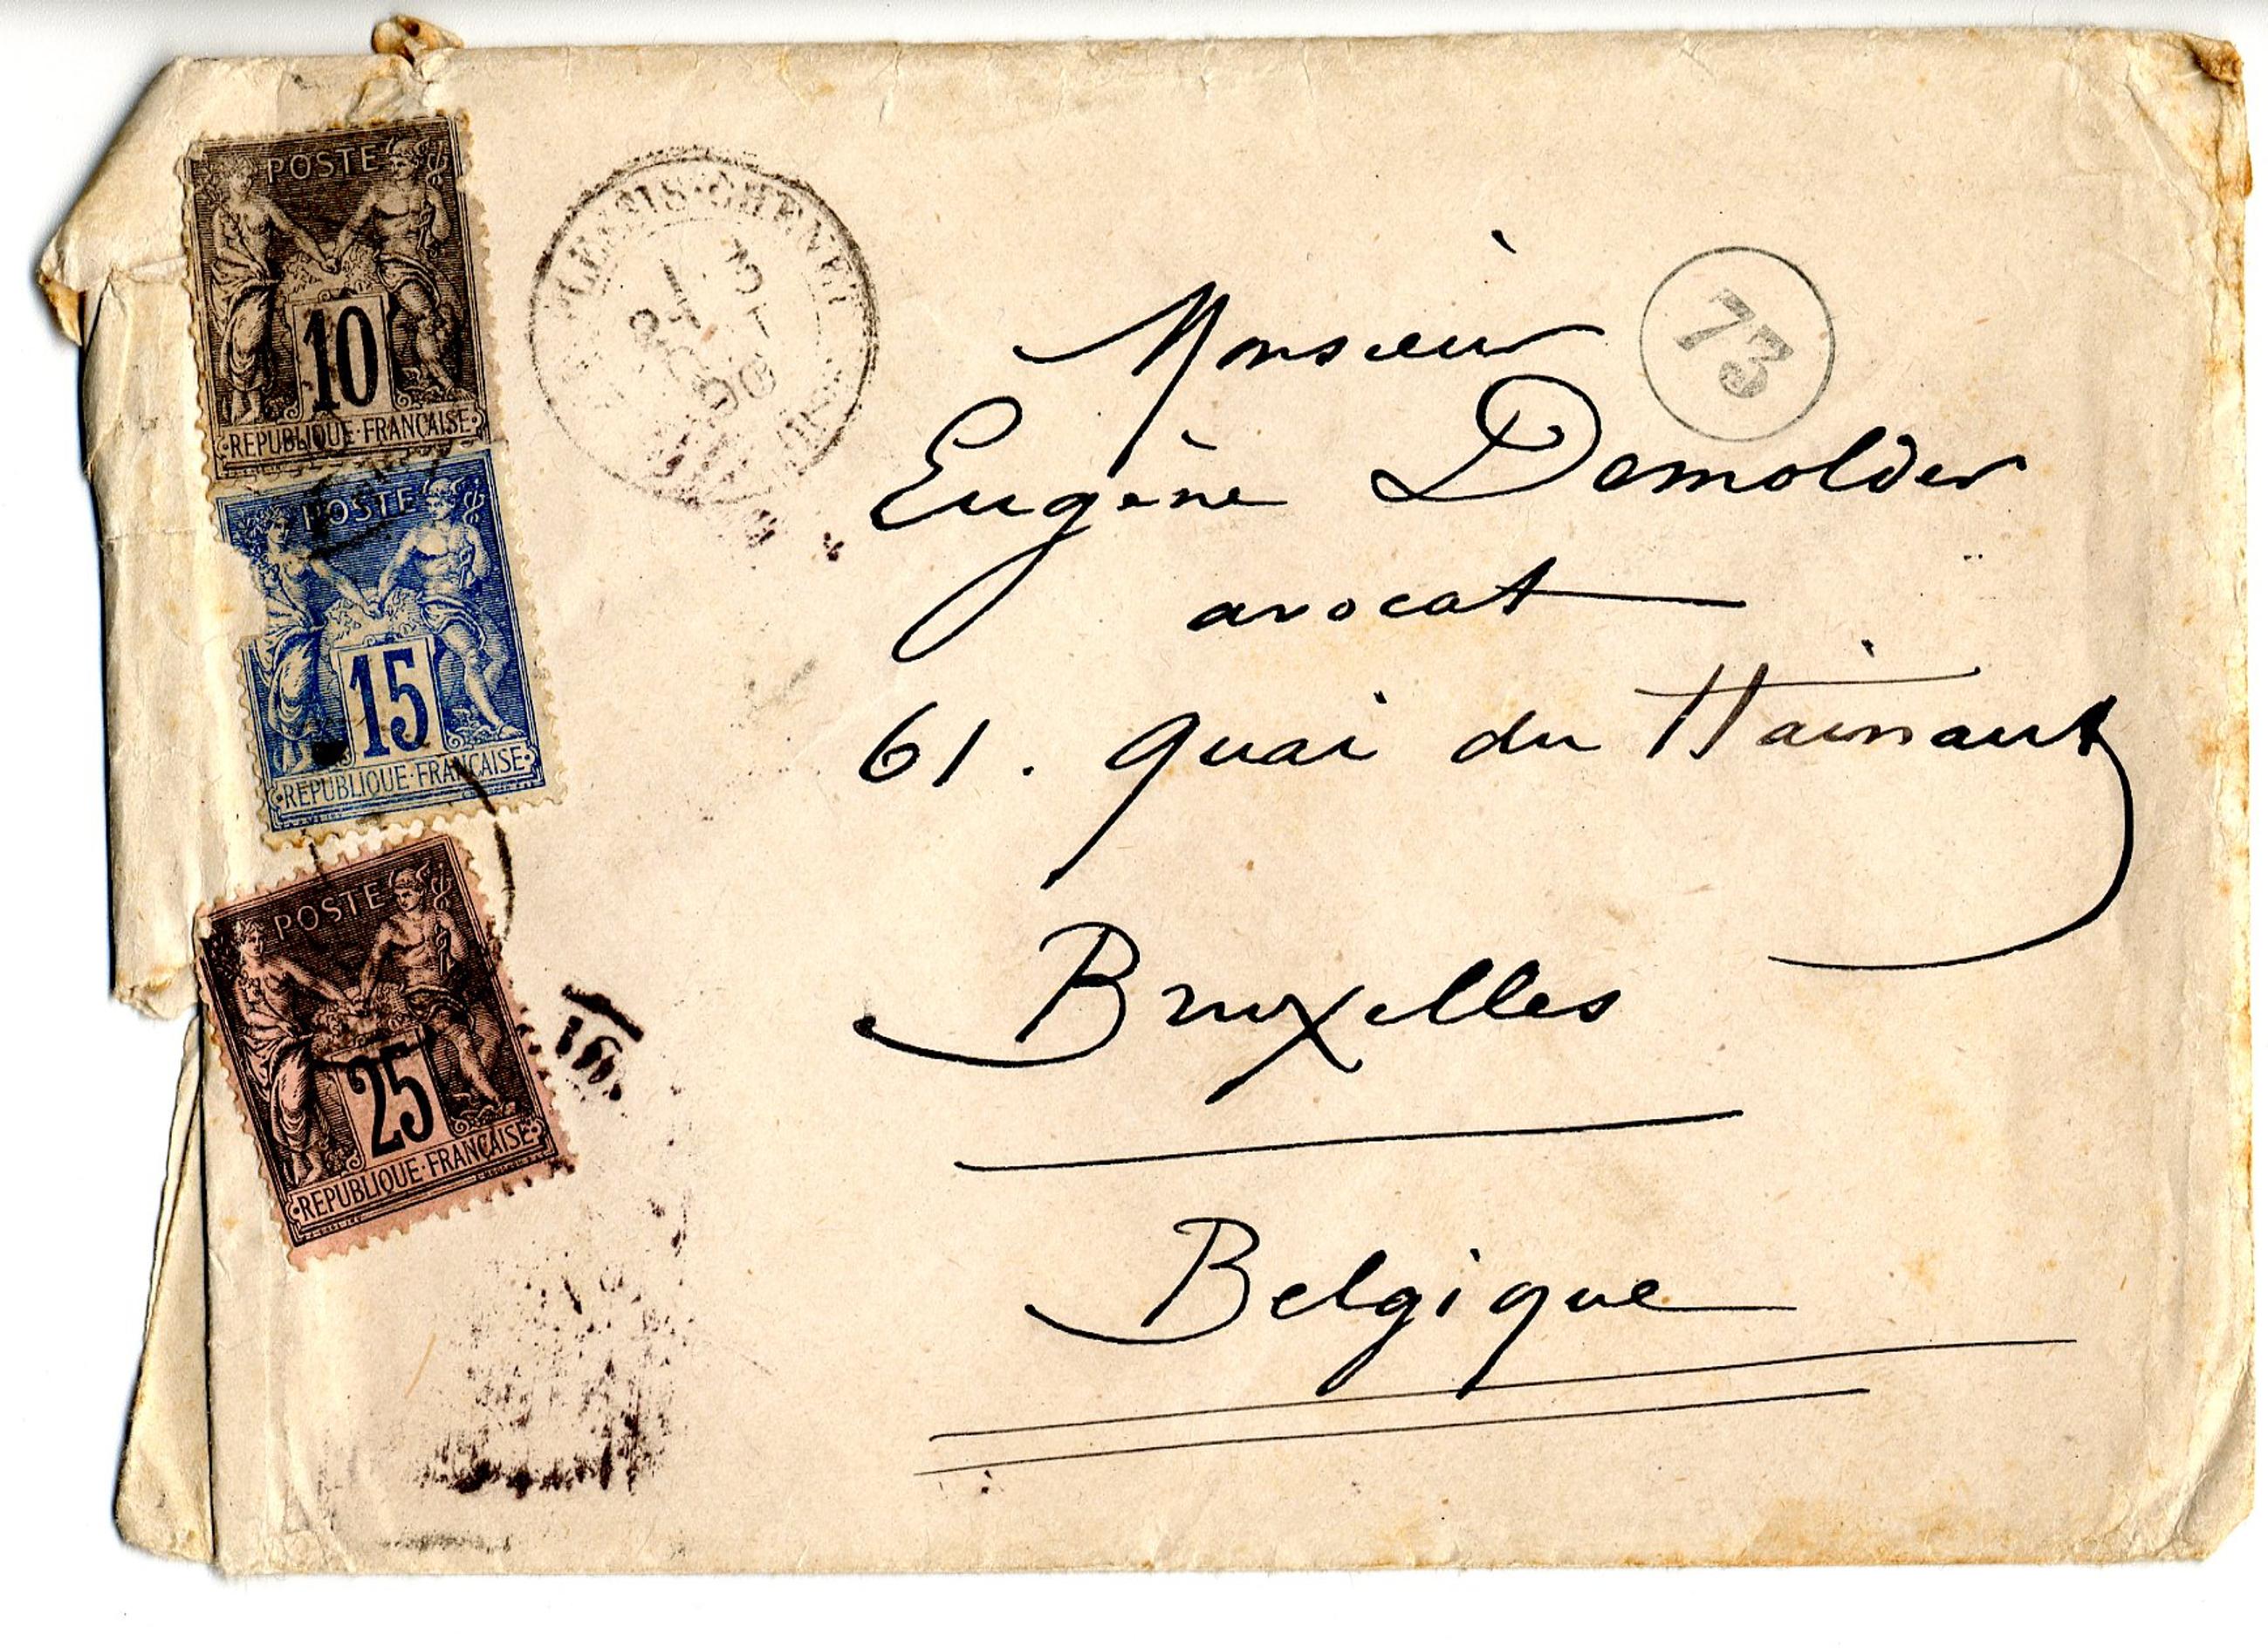 POSTE
10
REPUBLIQUE·FRANÇAISE
POSTE
15
REPUBLIQUE·FRANÇAISE
POSTE
25
REPUBLIQUE·FRANÇAISE
73
Monsieur
Eugène Demolder
avocat
61. quai du Hainaut
Bruxelles
Belgique